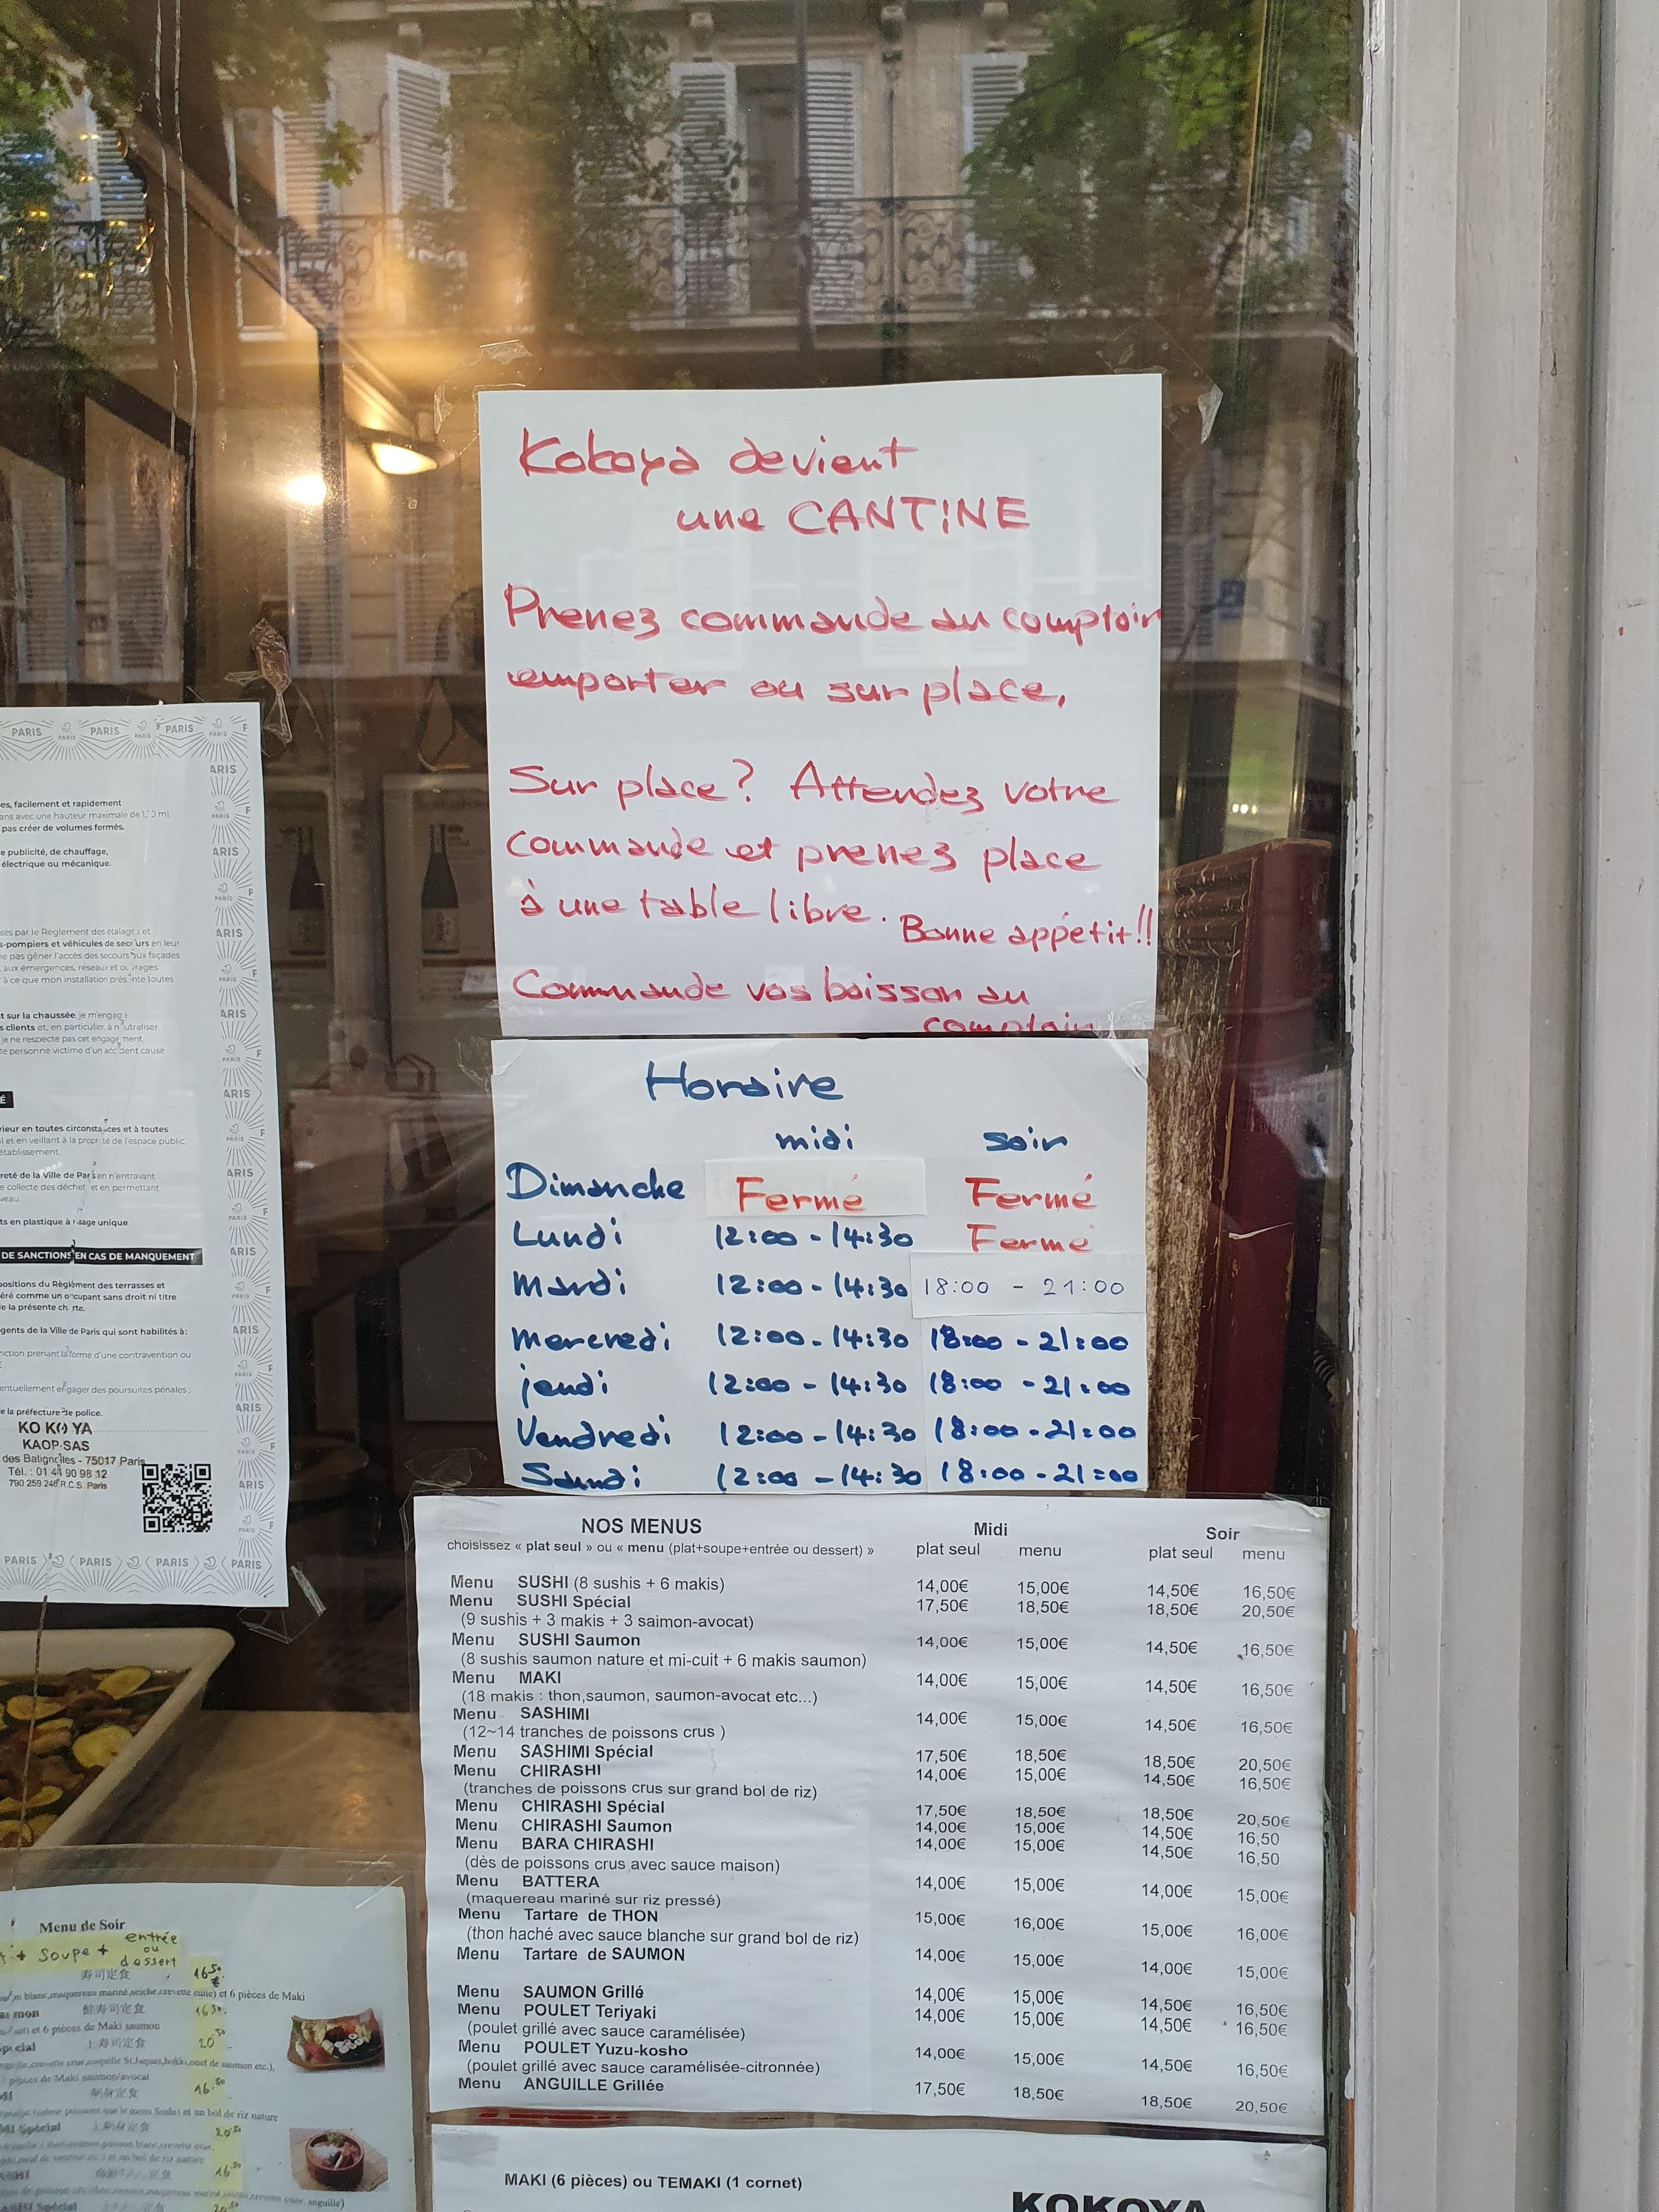 Kokoya devient
une CANTINE
Prenez commande au comptoir
emporter ou sur place,
Sur place? Attendez votre
commande et prenez place
à une table libre.
Bonne appétit!!
Commande vos boisson au
comptoir
Horaire
midi soir
Dimanche Fermé Fermé
Lundi 12:00 - 14:30 Fermé
Mardi 12:00 - 14:30 18:00 - 21:00
mercredi 12:00 - 14:30 18:00 - 21:00
jeudi 12:00 - 14:30 18:00 - 21:00
Vendredi 12:00 - 14:30 18:00 - 21:00
Samdi 12:00 - 14:30 18:00 - 21:00
NOS MENUS Midi Soir
choisissez « plat seul » ou « menu (plat+soupe+entrée ou dessert) » plat seul menu plat seul menu
Menu SUSHI (8 sushis + 6 makis) 14,00€ 15,00€ 14,50€ 16,50€
Menu SUSHI Spécial 17,50€ 18,50€ 18,50€ 20,50€
(9 sushis + 3 makis + 3 saimon-avocat)
Menu SUSHI Saumon 14,00€ 15,00€ 14,50€ 16,50€
(8 sushis saumon nature et mi-cuit + 6 makis saumon)
Menu MAKI 14,00€ 15,00€ 14,50€ 16,50€
(18 makis : thon,saumon, saumon-avocat etc...)
Menu SASHIMI 14,00€ 15,00€ 14,50€ 16,50€
(12~14 tranches de poissons crus )
Menu SASHIMI Spécial 17,50€ 18,50€ 18,50€ 20,50€
Menu CHIRASHI 14,00€ 15,00€ 14,50€ 16,50€
(tranches de poissons crus sur grand bol de riz)
Menu CHIRASHI Spécial 17,50€ 18,50€ 18,50€ 20,50€
Menu CHIRASHI Saumon 14,00€ 15,00€ 14,50€ 16,50
Menu BARA CHIRASHI 14,00€ 15,00€ 14,50€ 16,50
(dès de poissons crus avec sauce maison)
Menu BATTERA 14,00€ 15,00€ 14,00€ 15,00€
(maquereau mariné sur riz pressé)
Menu Tartare de THON 15,00€ 16,00€ 15,00€ 16,00€
(thon haché avec sauce blanche sur grand bol de riz)
Menu Tartare de SAUMON 14,00€ 15,00€ 14,00€ 15,00€
Menu SAUMON Grillé 14,00€ 15,00€ 14,50€ 16,50€
Menu POULET Teriyaki 14,00€ 15,00€ 14,50€ 16,50€
(poulet grillé avec sauce caramélisée)
Menu POULET Yuzu-kosho 14,00€ 15,00€ 14,50€ 16,50€
(poulet grillé avec sauce caramélisée-citronnée)
Menu ANGUILLE Grillée 17,50€ 18,50€ 18,50€ 20,50€
MAKI (6 pièces) ou TEMAKI (1 cornet)
KOKOYA
PARIS PARIS PARIS
es, facilement et rapidement
ans avec une hauteur maximale de
pas créer de volumes fermés.
e publicité, de chauffage,
électrique ou mécanique.
sés par le Règlement des étalages et
s-pompiers et véhicules de secours en leur
ne pas gêner l'accès des secours aux façades
aux émergences, réseaux et ouvrages
à ce que mon installation présente toutes
t sur la chaussée, je m'engage
s clients et, en particulier, à neutraliser
je ne respecte pas cet engagement,
te personne victime d'un accident causé
rieur en toutes circonstances et à toutes
l et en veillant à la propreté de l'espace public,
établissement.
reté de la Ville de Paris en n'entravant
e collecte des déchets et en permettant
ts en plastique à usage unique.
DE SANCTIONS EN CAS DE MANQUEMENT
positions du Règlement des terrasses et
éré comme un occupant sans droit ni titre
e la présente charte.
gents de la Ville de Paris qui sont habilités à:
nction prenant la forme d'une contravention ou
entuellement engager des poursuites pénales ;
e la préfecture de police.
KO KO YA
KAOP SAS
des Batignolles - 75017 Paris
Tél. : 01 44 90 98 12
790 259 246 R.C.S. Paris
PARIS PARIS PARIS PARIS
Menu de Soir
+ soupe + entrée
ou
dessert
寿司定食 16.50 €
blanc,maquereau mariné,seiche,crevette cuite) et 6 pièces de Maki
鮭寿司定食 16.50
et 6 pièces de Maki saumon
上寿司定食 20.50
pièces de Maki saumon/avocat
16.50
et un bol de riz nature
20.50
16.50
20.50